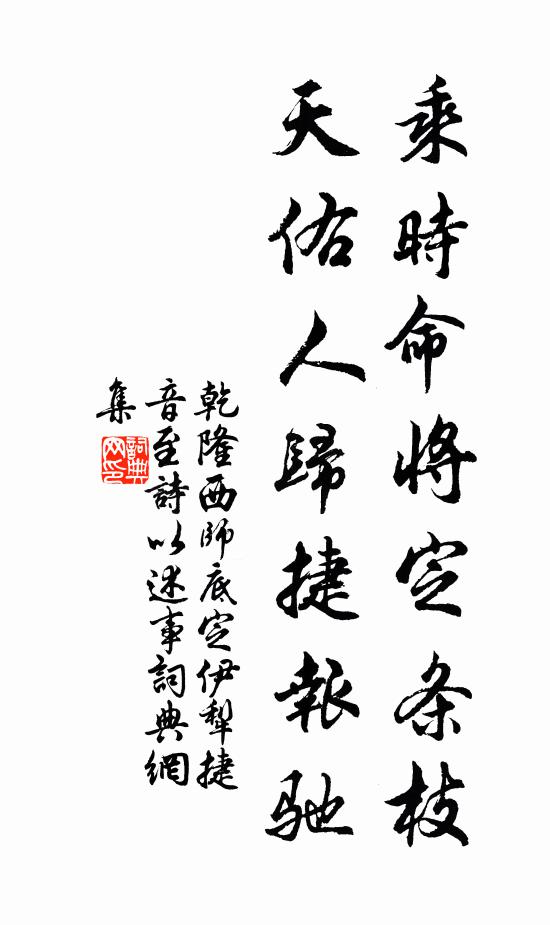 乘時命將定条枝
天佑人歸捷報馳
乾隆西師底定伊犁捷
音至詩以述事詞典網
集
詞典
网印